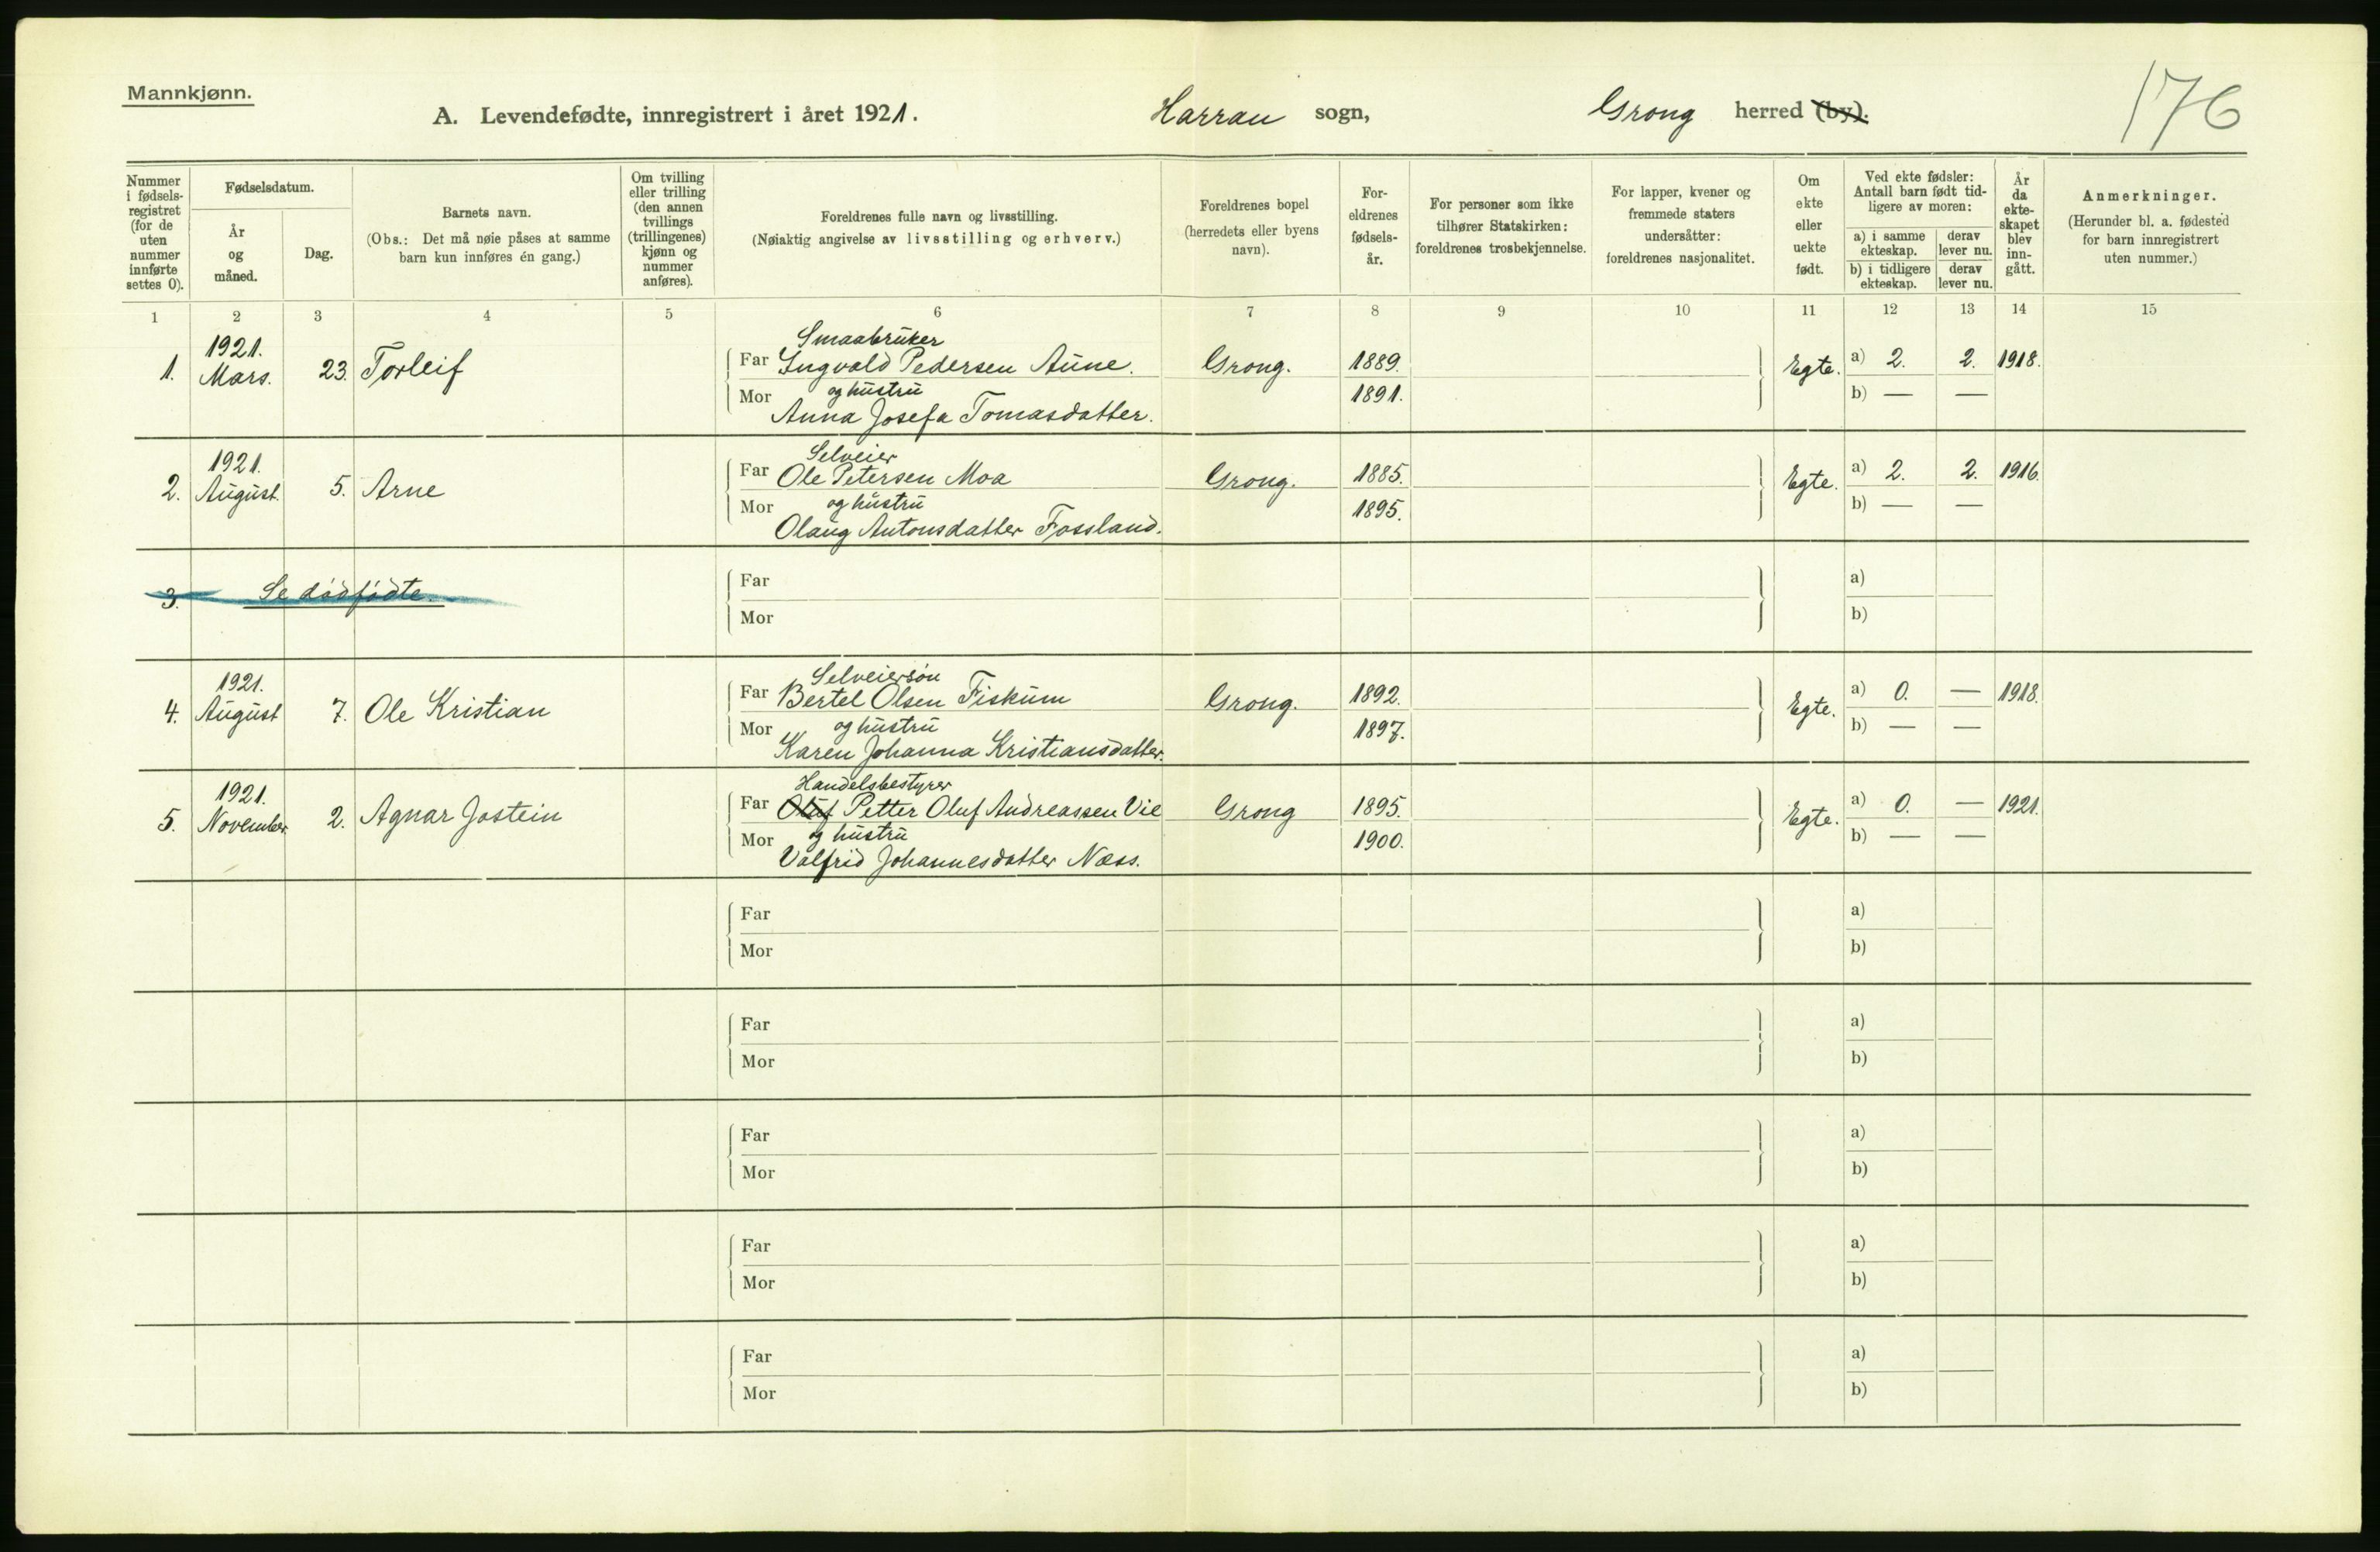 Mannkjønn.
A. Levendefødte, innregistrert i året 1921.
Harran sogn,
Grong herred (by).
176
Nummer i fødsels-registret (for de uten nummer innførte settes 0).
Fødselsdatum.
År og måned.
Dag.
Barnets navn.
(Obs.: Det må nøie påses at samme barn kun innføres én gang.)
Om tvilling eller trilling (den annen tvillings (trillingenes) kjønn og nummer anføres).
Foreldrenes fulle navn og livsstilling.
(Nøiaktig angivelse av livsstilling og erhverv.)
Foreldrenes bopel (herredets eller byens navn).
For-eldrenes fødsels-år.
For personer som ikke tilhører Statskirken: foreldrenes trosbekjennelse.
For lapper, kvener og fremmede staters undersåtter: foreldrenes nasjonalitet.
Om ekte eller uekte født.
Ved ekte fødsler: Antall barn født tid-ligere av moren:
a) i samme ekteskap.
derav lever nu.
b) i tidligere ekteskap.
derav lever nu.
År da ekte-skapet blev inn-gått.
Anmerkninger.
(Herunder bl. a. fødested for barn innregistrert uten nummer.)
1 2 3 4 5 6 7 8 9 10 11 12 13 14 15
1. 1921. Mars. 23. Torleif
Smaabruker
Far Ingvald Pedersen Aune. Grong. 1889. Egte. a) 2. 2. 1918.
Mor og hustru 1891. b) — —
Anna Josefa Tomasdatter.
2. 1921. August. 5. Arne
Selveier
Far Ole Petersen Moa Grong. 1885. Egte. a) 2. 2. 1916.
Mor og hustru 1895. b) — —
Olaug Antonsdatter Fossland.
3. Se dødfødte.
Far a)
Mor b)
4. 1921. August 7. Ole Kristian
Selveiersøn
Far Bertel Olsen Fiskum Grong. 1892. Egte. a) 0. — 1918.
Mor og hustru 1897. b) — —
Karen Johanna Kristiansdatter.
5. 1921. November. 2. Agnar Jostein
Handelsbestyrer
Far Oluf Petter Oluf Andreassen Vie Grong 1895. Egte. a) 0. — 1921.
Mor og hustru 1900. b) — —
Valfrid Johannesdatter Næss.
Far a)
Mor b)
Far a)
Mor b)
Far a)
Mor b)
Far a)
Mor b)
Far a)
Mor b)